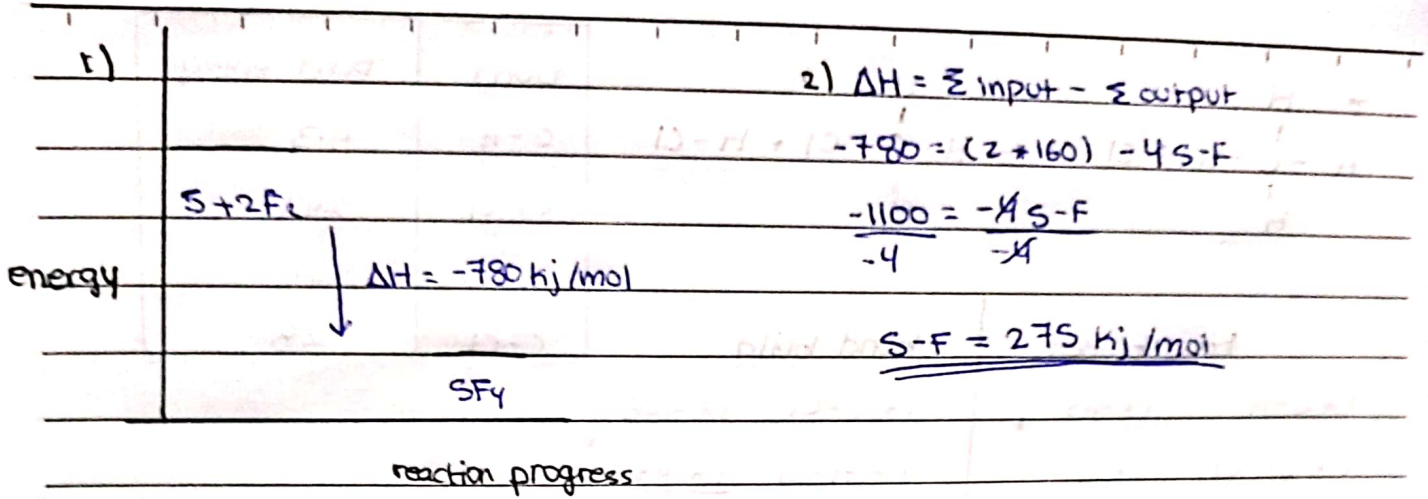 1)
S+2F₂
energy
ΔH = -780 kj/mol
SF4
reaction progress
2) ΔH = Σ input - Σ output
-780 = (2*160) - 4 S-F
-1100 = -4 S-F
-4 -4
S-F = 275 kj/mol